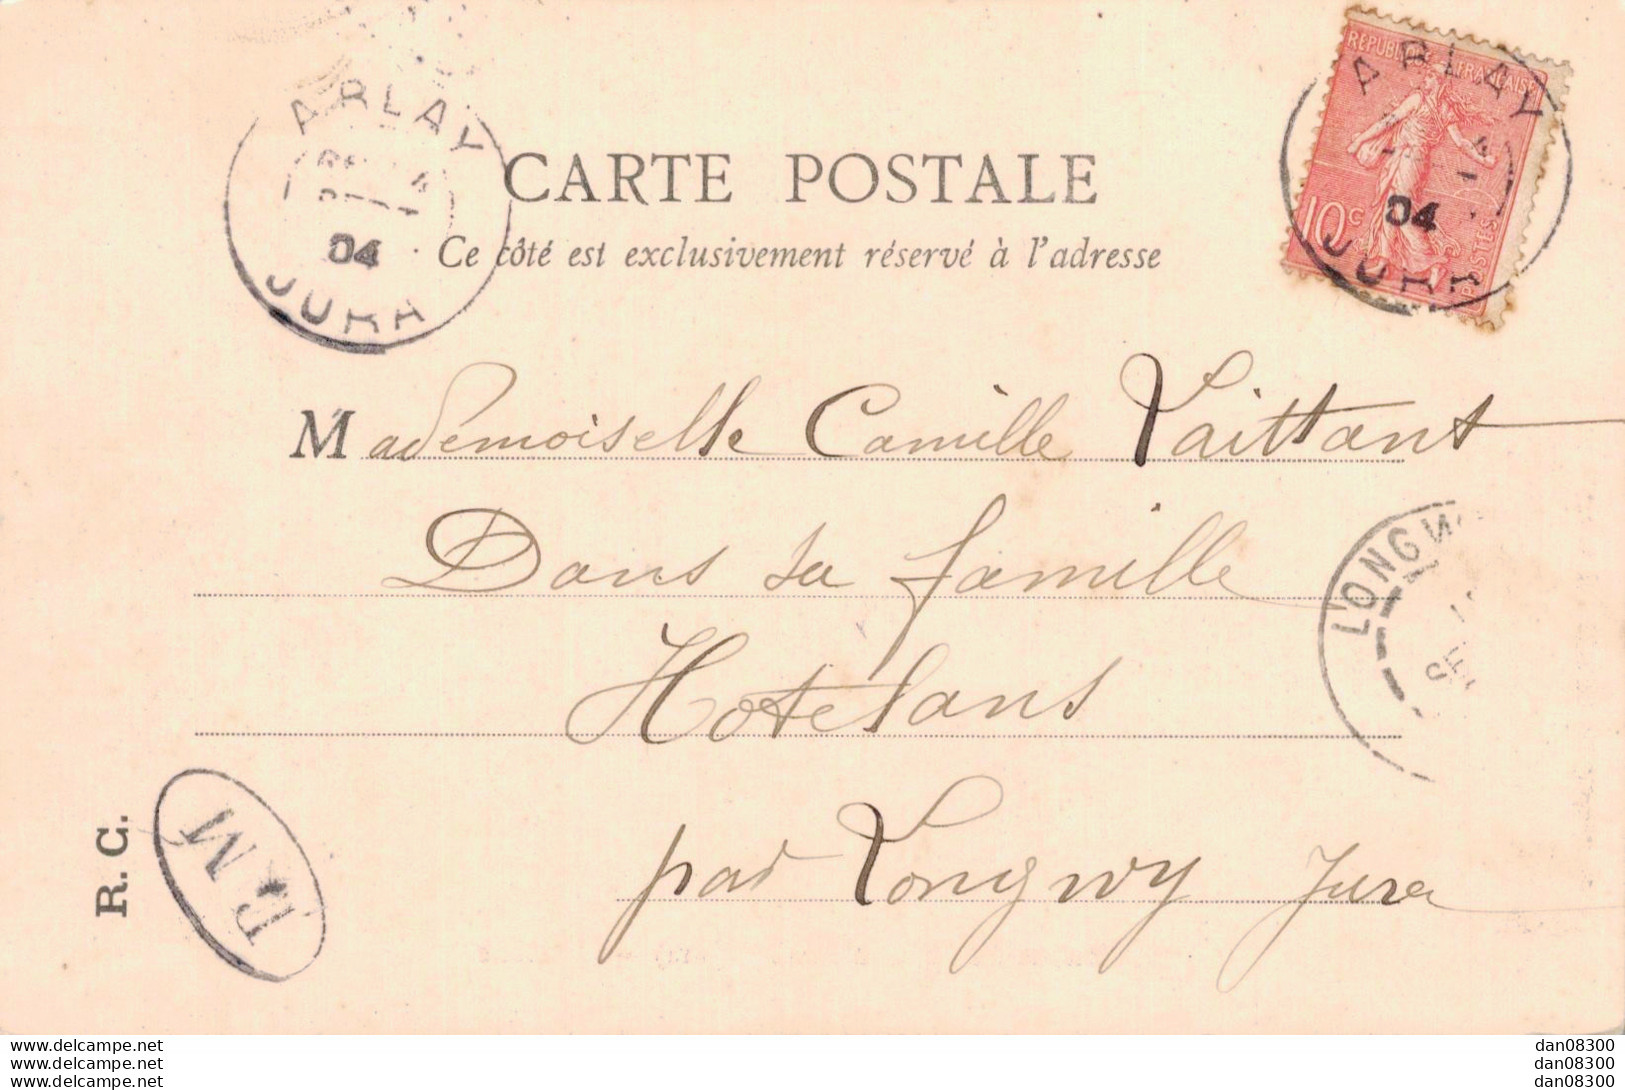 ARLAY
04
JURA
CARTE POSTALE
Ce côté est exclusivement réservé à l'adresse
REPUBLIQUE FRANÇAISE
10c
POSTES
ARLAY
04
JURA
Mademoiselle Camille Vaittant
Dans sa famille
Hotelans
par Longwy Jura
LONGW
SE
R. C.
www.delcampe.net
www.delcampe.net
www.delcampe.net
dan08300
dan08300
dan08300